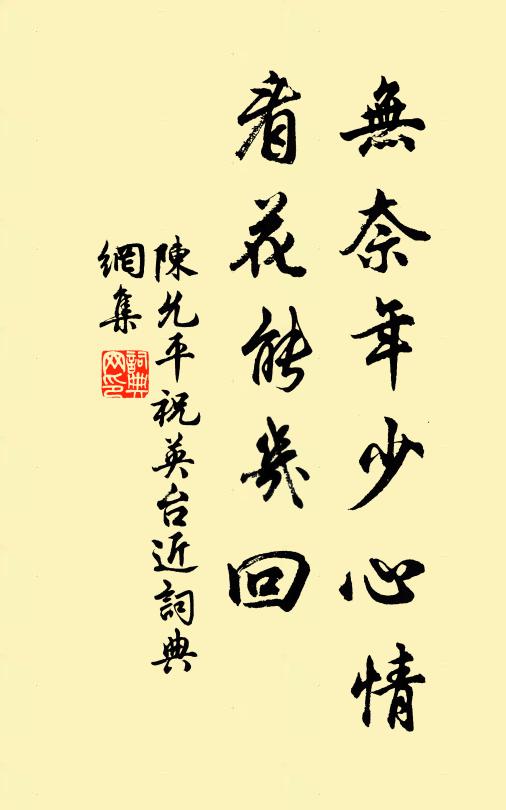 無奈年少心情
看花能幾回
陳允平祝英台近詞典
網集
詞典
网印